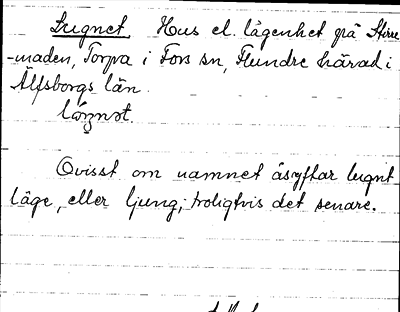 Lugnet. Hus el. lägenhet på Stora
-maden, Torpa i Fors sn, Flundre härad i
Älfsborgs län.
Ovisst om namnet åsyftar lugnt
läge, eller ljung; troligtvis det senare.